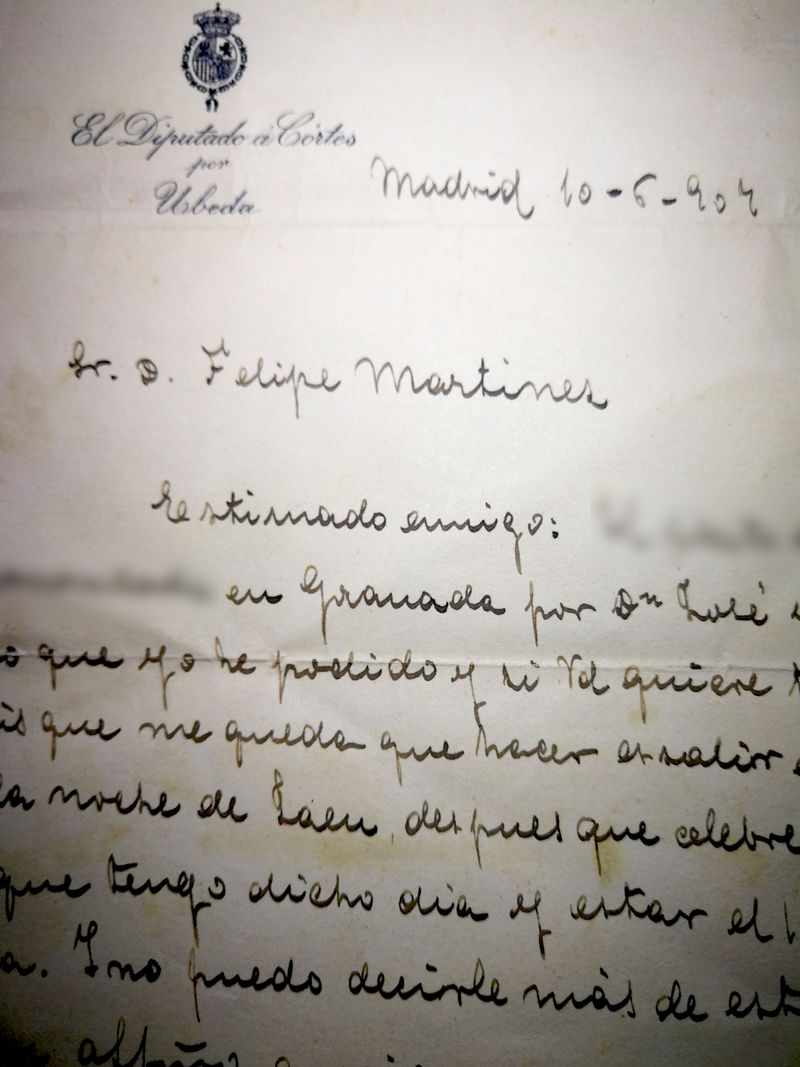 El Diputado á Córtes
por
Ubeda
Madrid 10-6-907
Sr. D. Felipe Martinez
Estimado amigo:
en Granada por Dn José
que yo he podido y si Vd quiere
que me queda que hacer es salir
la noche de Jaen, despues que celebre
que tengo dicho dia y estar el
a. Y no puedo decirle más de est